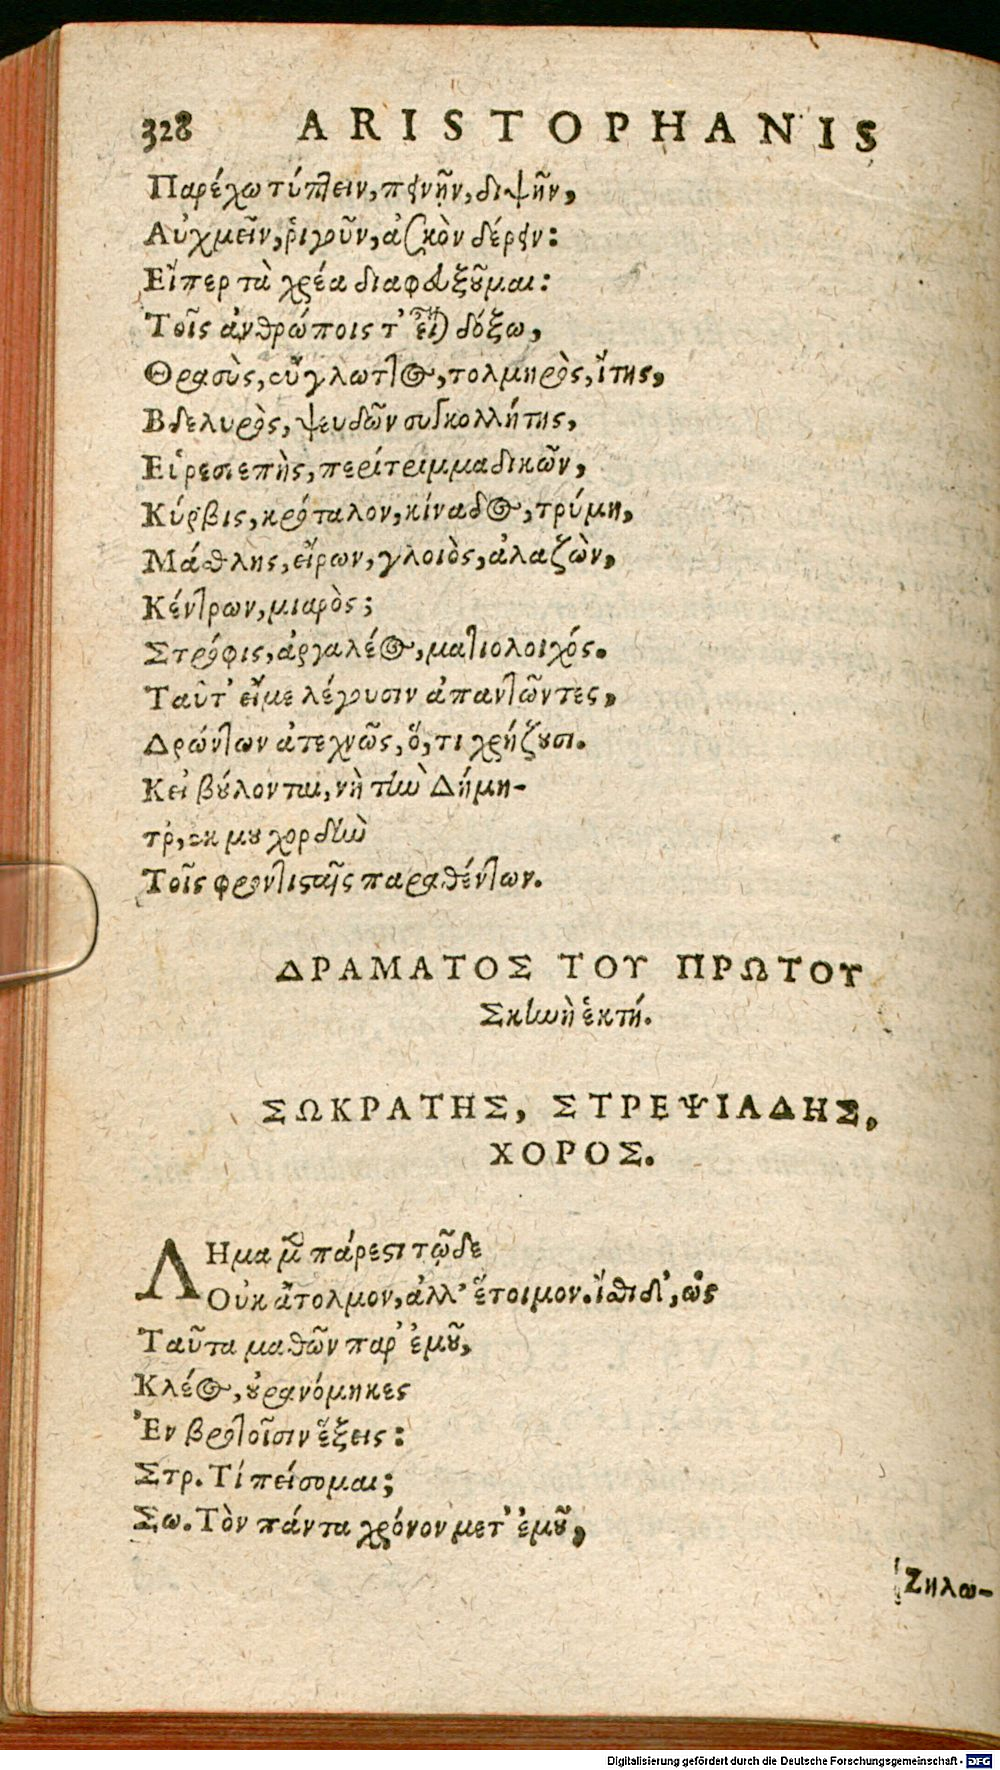 328 ARISTOPHANIS
Παρέχω τύπτειν, πεινῆν, διψῆν,
Αὐχμεῖν, ῥιγοῦν, ἀσκὸν δέρειν:
Εἴπερ τὰ χρέα διαφευξοῦμαι:
Τοῖς ἀνθρώποις τ' εἶναι δόξω,
Θρασὺς, εὔγλωττος, τολμηρὸς, ἴτης,
Βδελυρὸς, ψευδῶν συγκολλήτης,
Εὑρεσιεπὴς, περίτριμμα δικῶν,
Κύρβις, κρόταλον, κίναδος, τρύμη,
Μάθλης, εἴρων, γλοιὸς, ἀλαζὼν,
Κέντρων, μιαρὸς;
Στρόφις, ἀργαλέος, ματιολοιχός.
Ταῦτ' εἴ με λέγουσιν ἀπαντῶντες,
Δρώντων ἀτεχνῶς, ὅ, τι χρήζουσι.
Κεἰ βούλονται, νὴ τὴν Δήμη-
τρ, ἐκ μου χορδὴν
Τοῖς φροντισταῖς παραθέντων.
ΔΡΑΜΑΤΟΣ ΤΟΥ ΠΡΩΤΟΥ
Σκηνὴ ἑκτή.
ΣΩΚΡΑΤΗΣ, ΣΤΡΕΨΙΑΔΗΣ,
ΧΟΡΟΣ.
ΛΗμα μὲν πάρεστι τῷδε
Οὐκ ἄτολμον, ἀλλ' ἕτοιμον. ἴσθι δ', ὡς
Ταῦτα μαθὼν παρ' ἐμοῦ,
Κλέος, οὐρανόμηκες
Ἐν βροτοῖσιν ἕξεις:
Στρ. Τί πείσομαι;
Σω. Τὸν πάντα χρόνον μετ' ἐμοῦ,
Ζηλω-
Digitalisierung gefördert durch die Deutsche Forschungsgemeinschaft - DFG